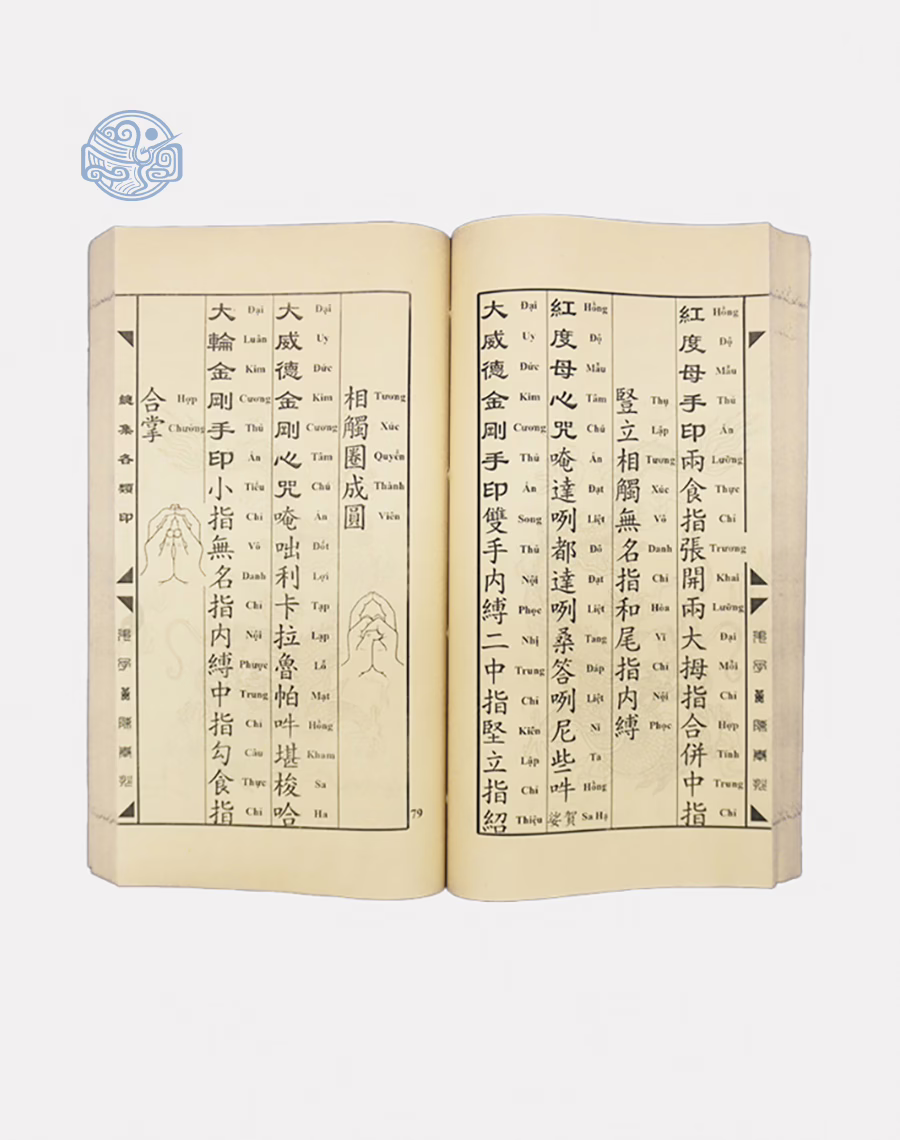 紅度母手印兩食指張開兩大拇指合併中指
Hồng Độ Mẫu Thủ Ấn Lưỡng Thực Chỉ Trương Khai Lưỡng Đại Mỗi Chỉ Hợp Tính Trung Chỉ
豎立相觸無名指和尾指内縛
Thụ Lập Tương Xúc Vô Danh Chỉ Hòa Vĩ Chỉ Nội Phọc
紅度母心咒唵達咧都達咧桑答咧尼些吽娑賀
Hồng Độ Mẫu Tâm Chú Án Đạt Liệt Đô Đạt Liệt Tang Đáp Liệt Ni Ta Hồng Sa Hạ
大威德金剛手印雙手内縛二中指堅立指紹
Đại Uy Đức Kim Cương Thủ Ấn Song Thủ Nội Phọc Nhị Trung Chỉ Kiên Lập Chỉ Thiệu
相觸圈成圓
Tương Xúc Quyển Thành Viên
大威德金剛心咒唵咄利卡拉魯帕吽堪梭哈
Đại Uy Đức Kim Cương Tâm Chú Án Đốt Lợi Tạp Lạp Lỗ Mạt Hồng Kham Sa Ha
大輪金剛手印小指無名指内縛中指勾食指
Đại Luân Kim Cương Thủ Ấn Tiểu Chỉ Vô Danh Chỉ Nội Phược Trung Chỉ Câu Thực Chỉ
合掌
Hợp Chưởng
總集各類印
79